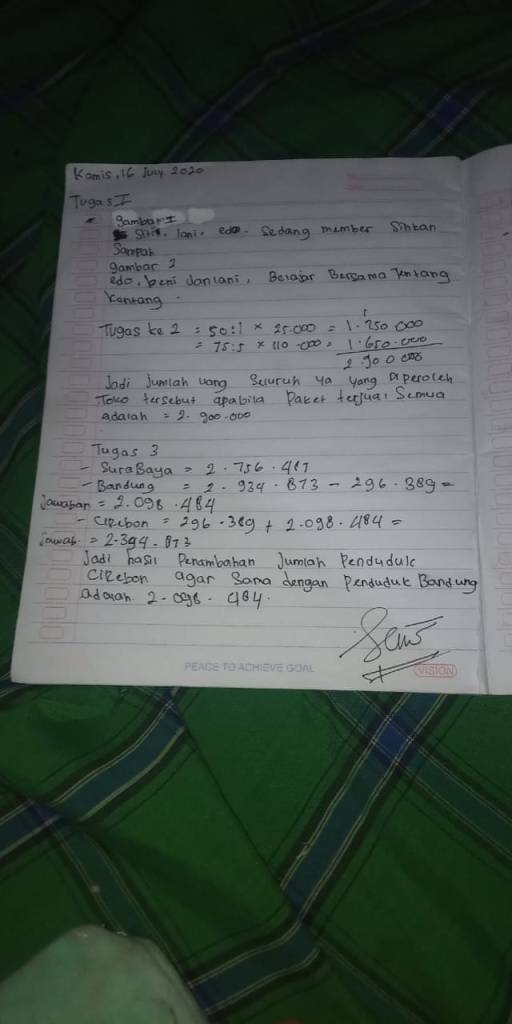 Kamis, 16 July 2020
Tugas I
Gambar I
Siti, lani, edo. Sedang member Sihkan
Sampah
gambar 2
edo, beni dan lani, Belajar Bersama Tentang
Kentang.
Tugas ke 2 = 50:1 × 25.000 = 1.250 000
= 75:5 × 110.000 = 1.650.000
2.900 000
Jadi Jumlah uang Seluruh ya yang Diperoleh
Toko tersebut apabila Paket terjual Semua
adalah = 2.900.000
Tugas 3
- SuraBaya = 2.756.487
- Bandung = 2.934.873 - 296.389 =
Jawaban = 2.098.484
- Cirebon = 296.389 + 2.098.484 =
Jawab. = 2.394.873
Jadi hasil Penambahan Jumlah Penduduk
CIRebon agar Sama dengan Penduduk Bandung
adalah. 2.098.484.
PEACE TO ACHIEVE GOAL
VISION